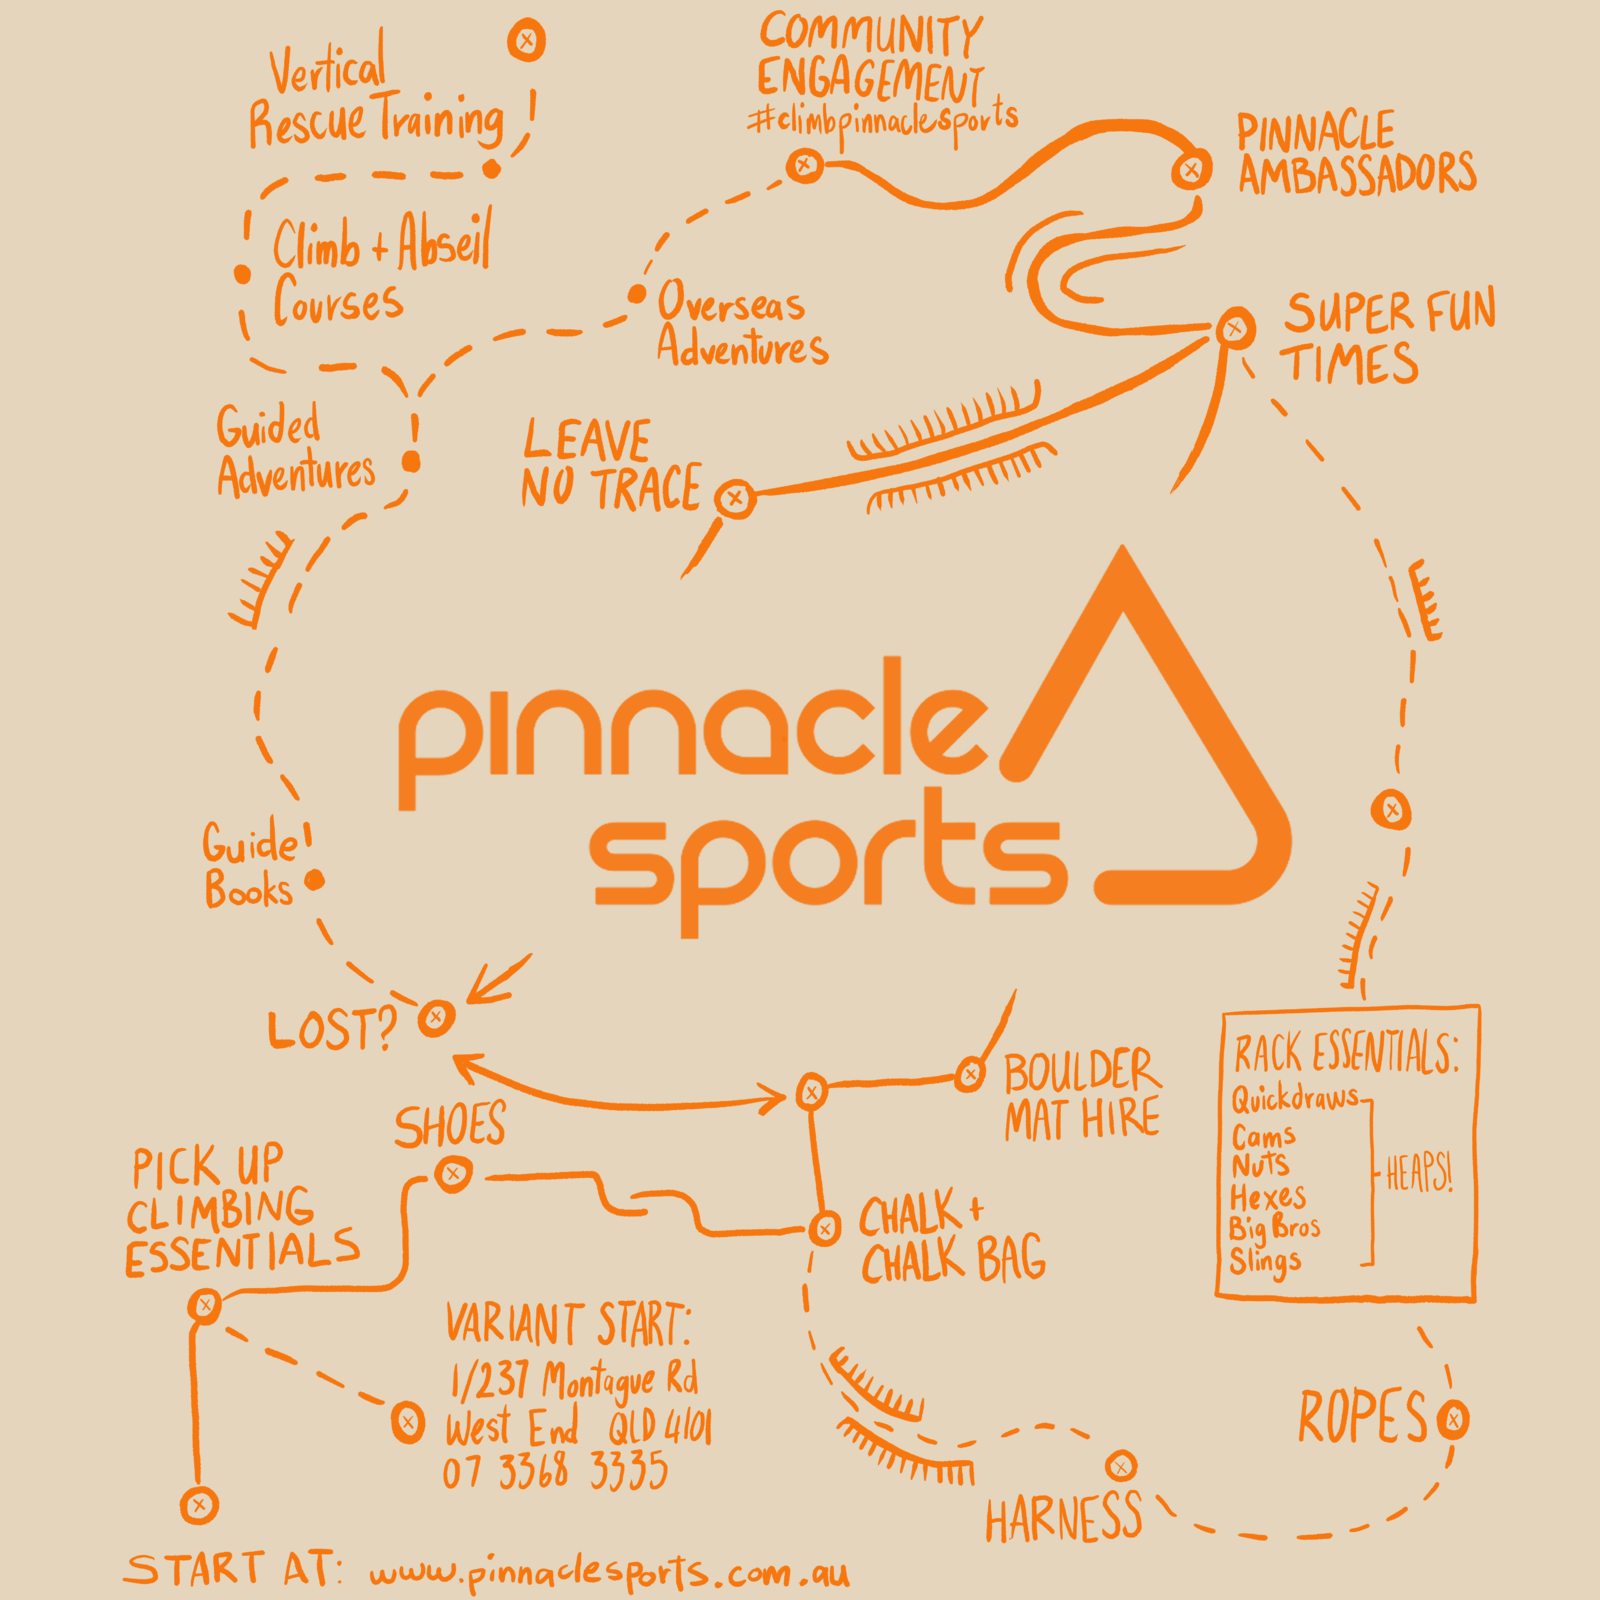 Vertical
Rescue Training
COMMUNITY
ENGAGEMENT
#climbpinnaclesports
PINNACLE
AMBASSADORS
Climb + Abseil
Courses
Overseas
Adventures
SUPER FUN
TIMES
Guided
Adventures
LEAVE
NO TRACE
pinnacle
sports
Guide
Books
LOST?
BOULDER
MAT HIRE
RACK ESSENTIALS:
Quickdraws
Cams
Nuts
Hexes
Big Bros
Slings
HEAPS!
SHOES
PICK UP
CLIMBING
ESSENTIALS
CHALK +
CHALK BAG
VARIANT START:
1/237 Montague Rd
West End QLD 4101
07 3368 3335
ROPES
HARNESS
START AT: www.pinnaclesports.com.au